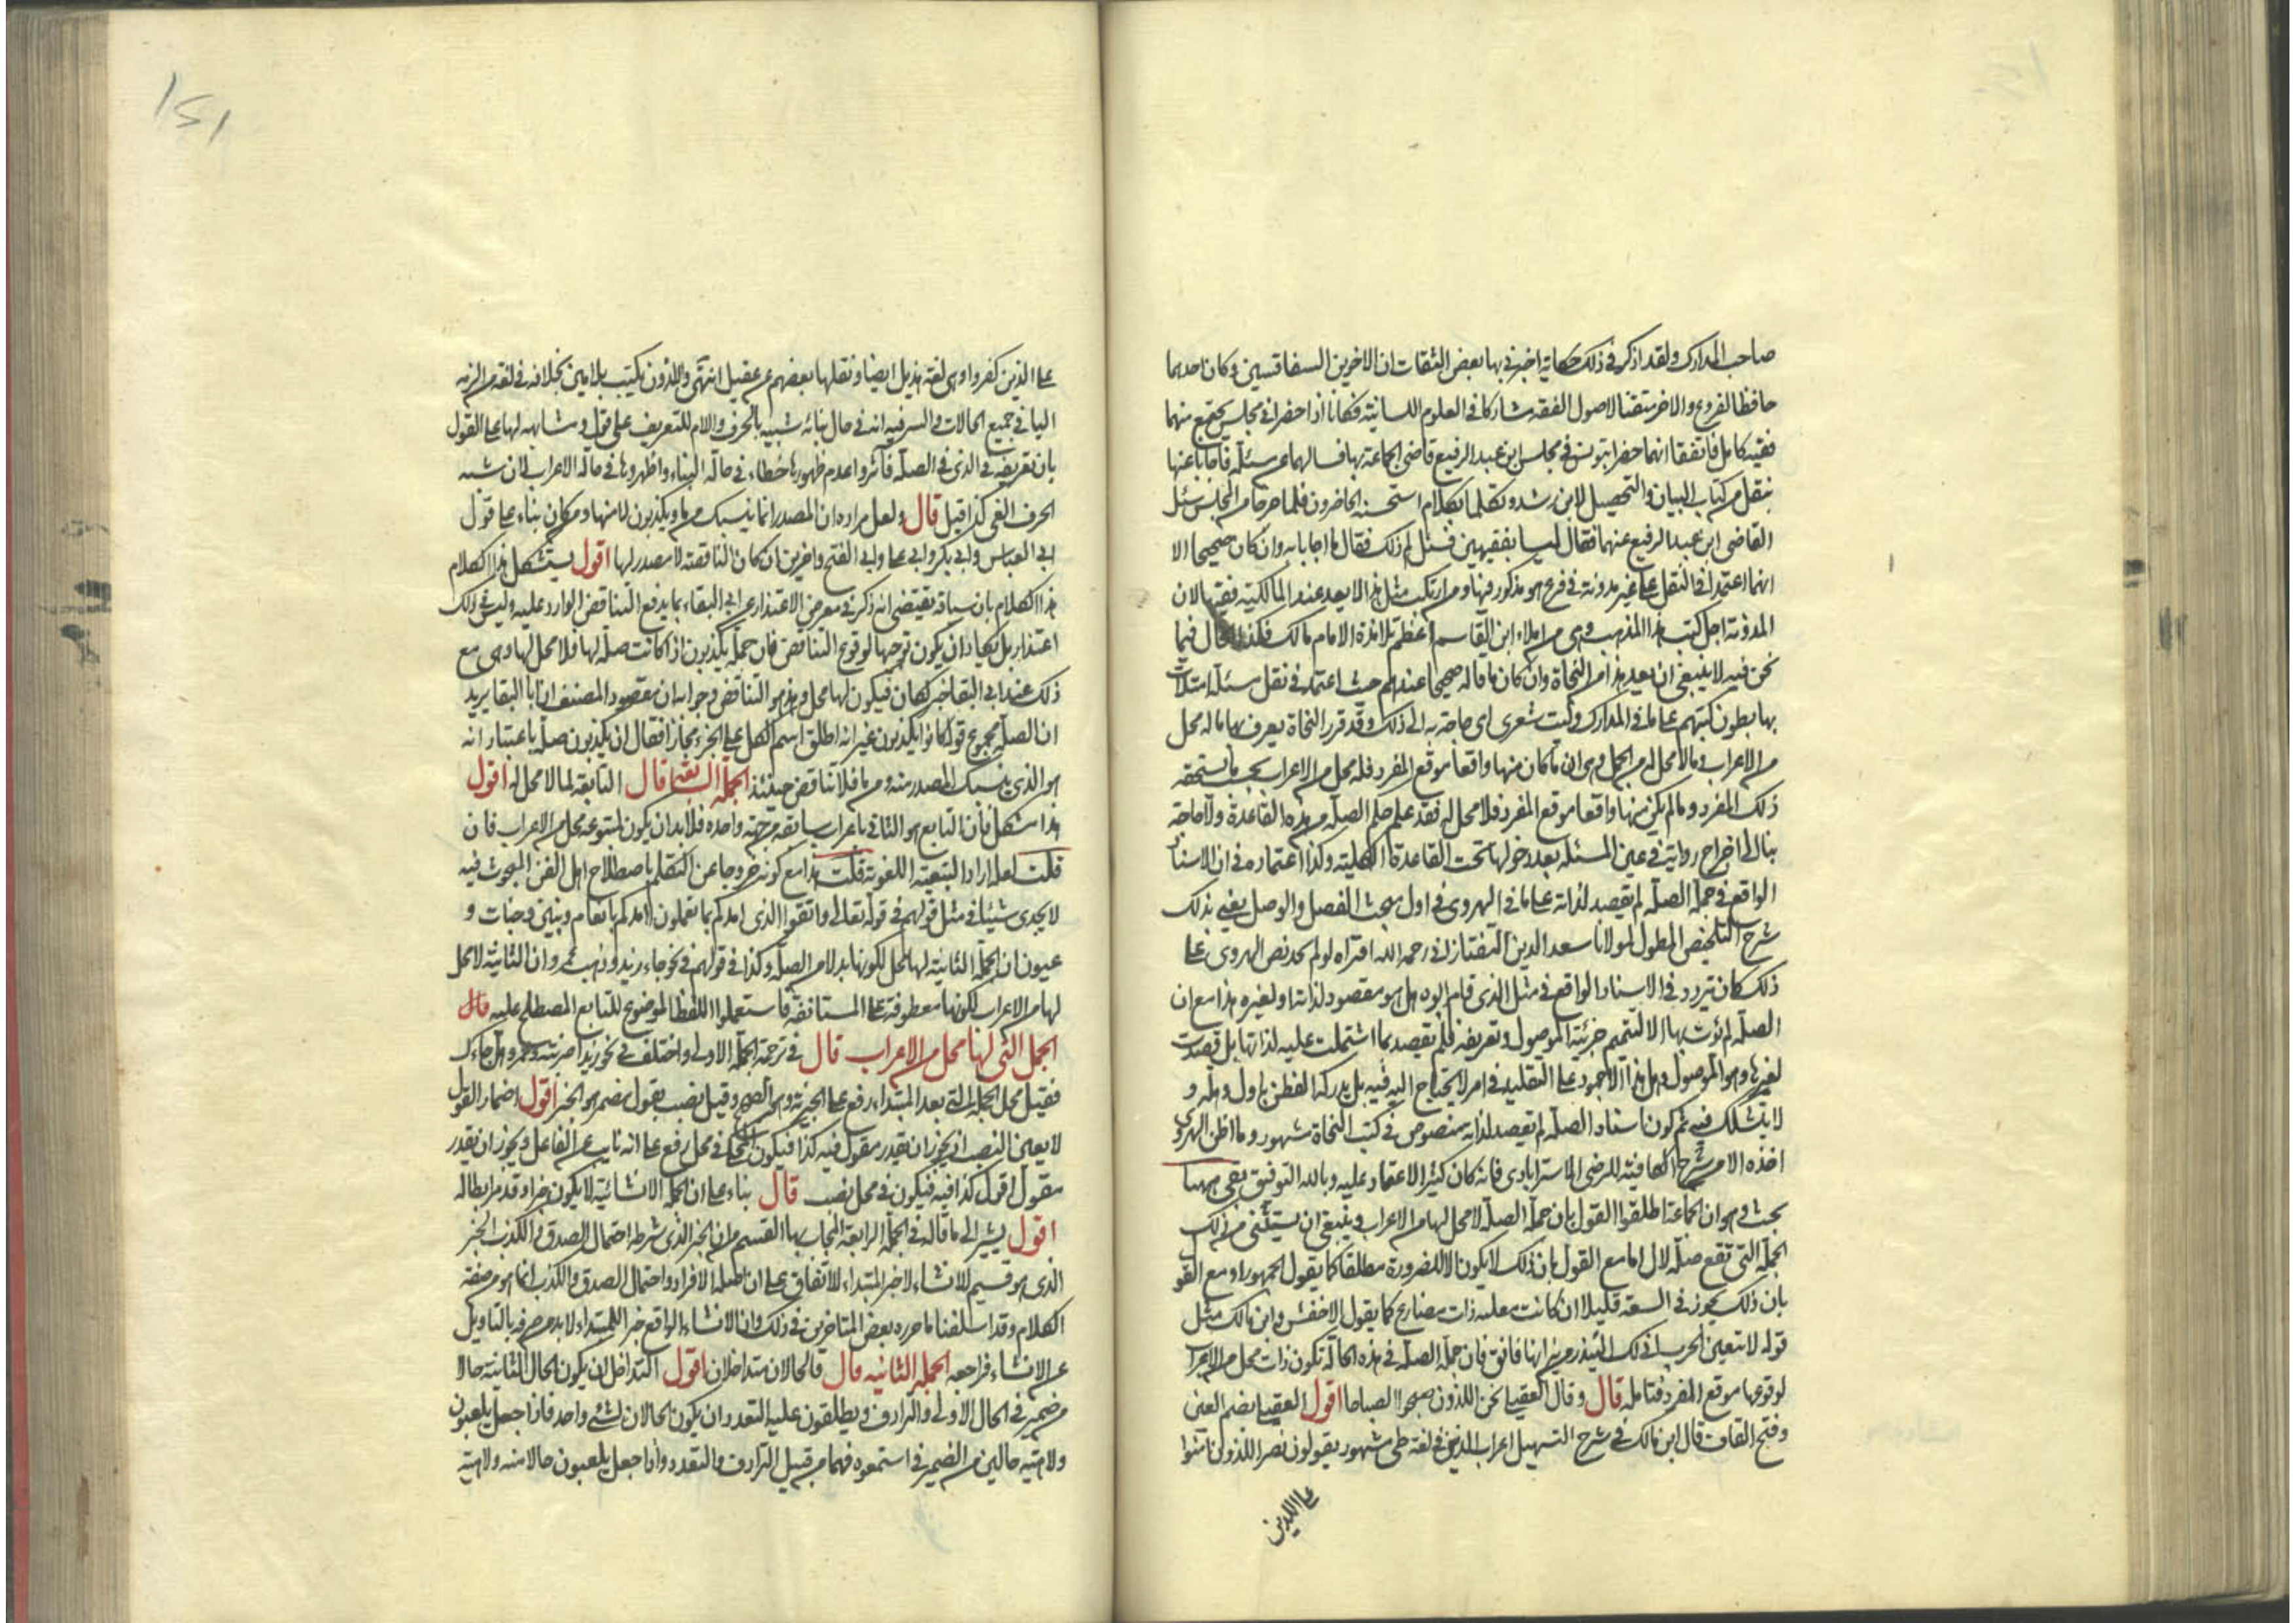 صاحب المدارك ولقد اذكر في ذلك حكاية اخبرني بها بعض الثقات ان الاخوين السفاقسيين وكان احدهما
حافظا لفروع والاخر متقنا لاصول الفقه مشاركا في العلوم اللسانية فكانا اذا حضرا في مجلس يجتمع منهما
فقيه كامل فاتفقا انهما حضرا بتونس في مجلس ابن عبد الرفيع قاضي الجماعة بها فسالهما عن مسئلة فاجابا عنها
بنقل من كتاب البيان والتحصيل لابن رشد وتكلما بكلام استحسنه الحاضرون فلما خرجا من المجلس سئل
القاضي ابن عبد الرفيع عنهما فقال ليسا بفقيهين فسئل لم ذلك فقال ما اجابا به وان كان صحيحا الا
انهما اعتمدا في النقل على غير مدونة في فرع هو مذكور فيها ومن ارتكب مثل هذا لا يعد عند المالكية فقيها لان
المدونة اجل كتب هذا المذهب وهي من املاء ابن القاسم اعظم تلامذة الامام مالك فلذا قال فيما
نحن فيه لا ينبغي ان يعد هذا من النحاة وان كان ما قاله صحيحا عندهم حيث اعتمد في نقل مسئلة امتلات
بها بطون كتبهم على ما في المدارك وليت شعري اي حاجة به الى ذلك وقد قرر النحاة يعرف بها ما له محل
من الاعراب وما لا محل له من الجمل وهي ان ما كان منها واقعا موقع المفرد فله محل من الاعراب بحسب ما يستحقه
ذلك المفرد وما لم يكن منها واقعا موقع المفرد فلا محل له فقد علم حكم الصلة من هذه القاعدة ولا حاجة
بنا الى اخراج رواية في عين المسئلة بعد دخولها تحت القاعدة الكلية وكذا اعتماده في ان الاسناد
الواقع في جملة الصلة لم يقصد لذاته على ما في الهروي في اول مبحث الفصل والوصل يعني بذلك
شرح التلخيص المطول لمولانا سعد الدين التفتازاني رحمه الله افتراه لو لم يجد نص الهروي على
ذلك كان يتردد في الاسناد الواقع في مثل الذي قام ابوه هل هو مقصود لذاته او لغيره هذا مع ان
الصلة لم يؤت بها الا لتتميم جزئية الموصول وتعريفه فلم يقصد بما اشتملت عليه لذاتها بل قصدت
لغيرها وهو الموصول وهل هذا الا جمود على التقليد في امر لا يحتاج اليه فيه بل يدركه الفطن باول وهلة و
لا يتشكك فيه ثم كون اسناد الصلة لم يقصد لذاته منصوص في كتب النحاة مشهور وما اظن الهروي
اخذه الا من شرح الكافية للرضي الاستراباذي فانه كان كثير الاعتماد عليه وبالله التوفيق بقي ههنا
بحث وهو ان الجماعة اطلقوا القول بان جملة الصلة لا محل لها من الاعراب وينبغي ان يستثنى من ذلك
الجملة التي تقع صلة لال اما مع القول بان ذلك لا يكون الا للضرورة مطلقا كما يقول الجمهور او مع القول
بان ذلك يجوز في السعة قليلا ان كانت فعلية ذات مضارع كما يقول الاخفش وابن مالك مثل
قوله لا تبعثن الحرب اني لك الينذر من نيرانها فاتق فان جملة الصلة في هذه الحالة تكون ذات محل من الاعراب
لوقوعها موقع المفرد فتامله قال وقال العقيلي نحن اللذون صبحوا الصباحا اقول العقيلي بضم العين
وفتح القاف قال ابن مالك في شرح التسهيل اعراب الذين في لغة طي مشهور يقولون نصر اللذون امنوا
على اللذين
١٥١
على الذين كفروا وهي لغة هذيل ايضا ونقلها بعضهم عن عقيل انتهى واللذون يكتب بلامين بخلافه في لغة من الزمه
اليا في جميع الحالات والسر فيه انه في حال بنائه شبيه بالحرف واللام للتعريف على قول ومشابهه لها على القول
بان تعريفه في الذي في الصلة فاثروا عدم ظهورها خطاء في حالة البناء واظهروها في حالة الاعراب لان شبه
الحرف الغي كذا قيل قال ولعل مراده ان المصدر انما ينسبك من ما ويكذبون لا منها ومن كان بناء على قول
ابي العباس وابي بكر وابي علي وابي الفتح واخرين ان كان الناقصة لا مصدر لها اقول يستشكل هذا الكلام
هذا الكلام بان سياقه يقتضي انه ذكر في معرض الاعتذار عن ابي البقاء بما يدفع التناقض الوارد عليه وليت في ذلك
اعتذار بل يكاد ان يكون توجيها لوقوع التناقض فان جملة يكذبون اذا كانت صلة لها فلا محل لها وهي مع
ذلك عند ابي البقا خبر كان فيكون لها محل وهذا هو التناقض وجوابه ان مقصود المصنف ان ابا البقا يريد
ان الصلة مجموع قوله كانوا يكذبون غير انه اطلق اسم الكل على الجزء مجازا فقال ان يكذبون صلة باعتبار انه
هو الذي ينسبك المصدر منه ومن ما فلا تناقض حينئذ الجملة السابعة قال التابعة لما لا محل له اقول
هذا مشكل فان التابع هو الثاني باعراب سابقه من جهة واحدة فلا بد ان يكون لمتبوعه محل من الاعراب فان
قلت لعله اراد التبعية اللغوية قلت هذا مع كونه خروجا عن التكلم باصطلاح اهل الفن المبحوث فيه
لا يجدي شيئا في مثل قولهم في قوله تعالى واتقوا الذي امدكم بما تعلمون امدكم بانعام وبنين وجنات و
عيون ان الجملة الثانية لا محل لكونها بدلا من الصلة وكذا في قولهم في نحو جاء زيد وذهب عمرو ان الثانية لا محل
لها من الاعراب لكونها معطوفة على المستانفة فاستعملوا اللفظ الموضوع للتابع المصطلح عليه قال
الجمل التي لها محل من الاعراب قال في ترجمة الجملة الاولى واختلف في نحو زيد اضربه وعمرو هل جاءك
فقيل محل الجملة التي بعد المبتداء رفع على الخبرية وهو الصحيح وقيل نصب بقول مضمر هو الخبر اقول اضمار القول
لا يعين النصب اذ يجوز ان يقدر مقول فيه كذا فيكون في محل رفع على انه نايب عن الفاعل ويجوز ان يقدر
مقول اقول كذا فيه فيكون في محل نصب قال بناء على ان الجملة الانشائية لا يكون خبرا وقد مر ابطاله
اقول يشير الى ما قاله في الجملة الرابعة المجاب بها القسم من ان الخبر الذي شرطه احتمال الصدق والكذب الخبر
الذي هو قسيم للانشاء لا خبر المبتداء للاتفاق على ان اصله الافراد واحتمال الصدق والكذب انما هو من صفة
الكلام وقد اسلفنا ما حرره بعض المتاخرين في ذلك وان الانشاء الواقع خبرا للمبتداء لا بد من صرفه بالتاويل
عن الانشاء فراجعه الجملة الثانية قال فالحالان متداخلان اقول التداخل ان يكون الحال الثانية حالا
من ضمير في الحال الاولى والترادف ويطلقون عليه التعدد ان يكون الحالان لشئ واحد فاذا جعل يلعبون
ولاهية حالين من الضمير في استمعوه فهما من قبيل الترادف والتعدد واذا جعل يلعبون حالا منه ولاهية